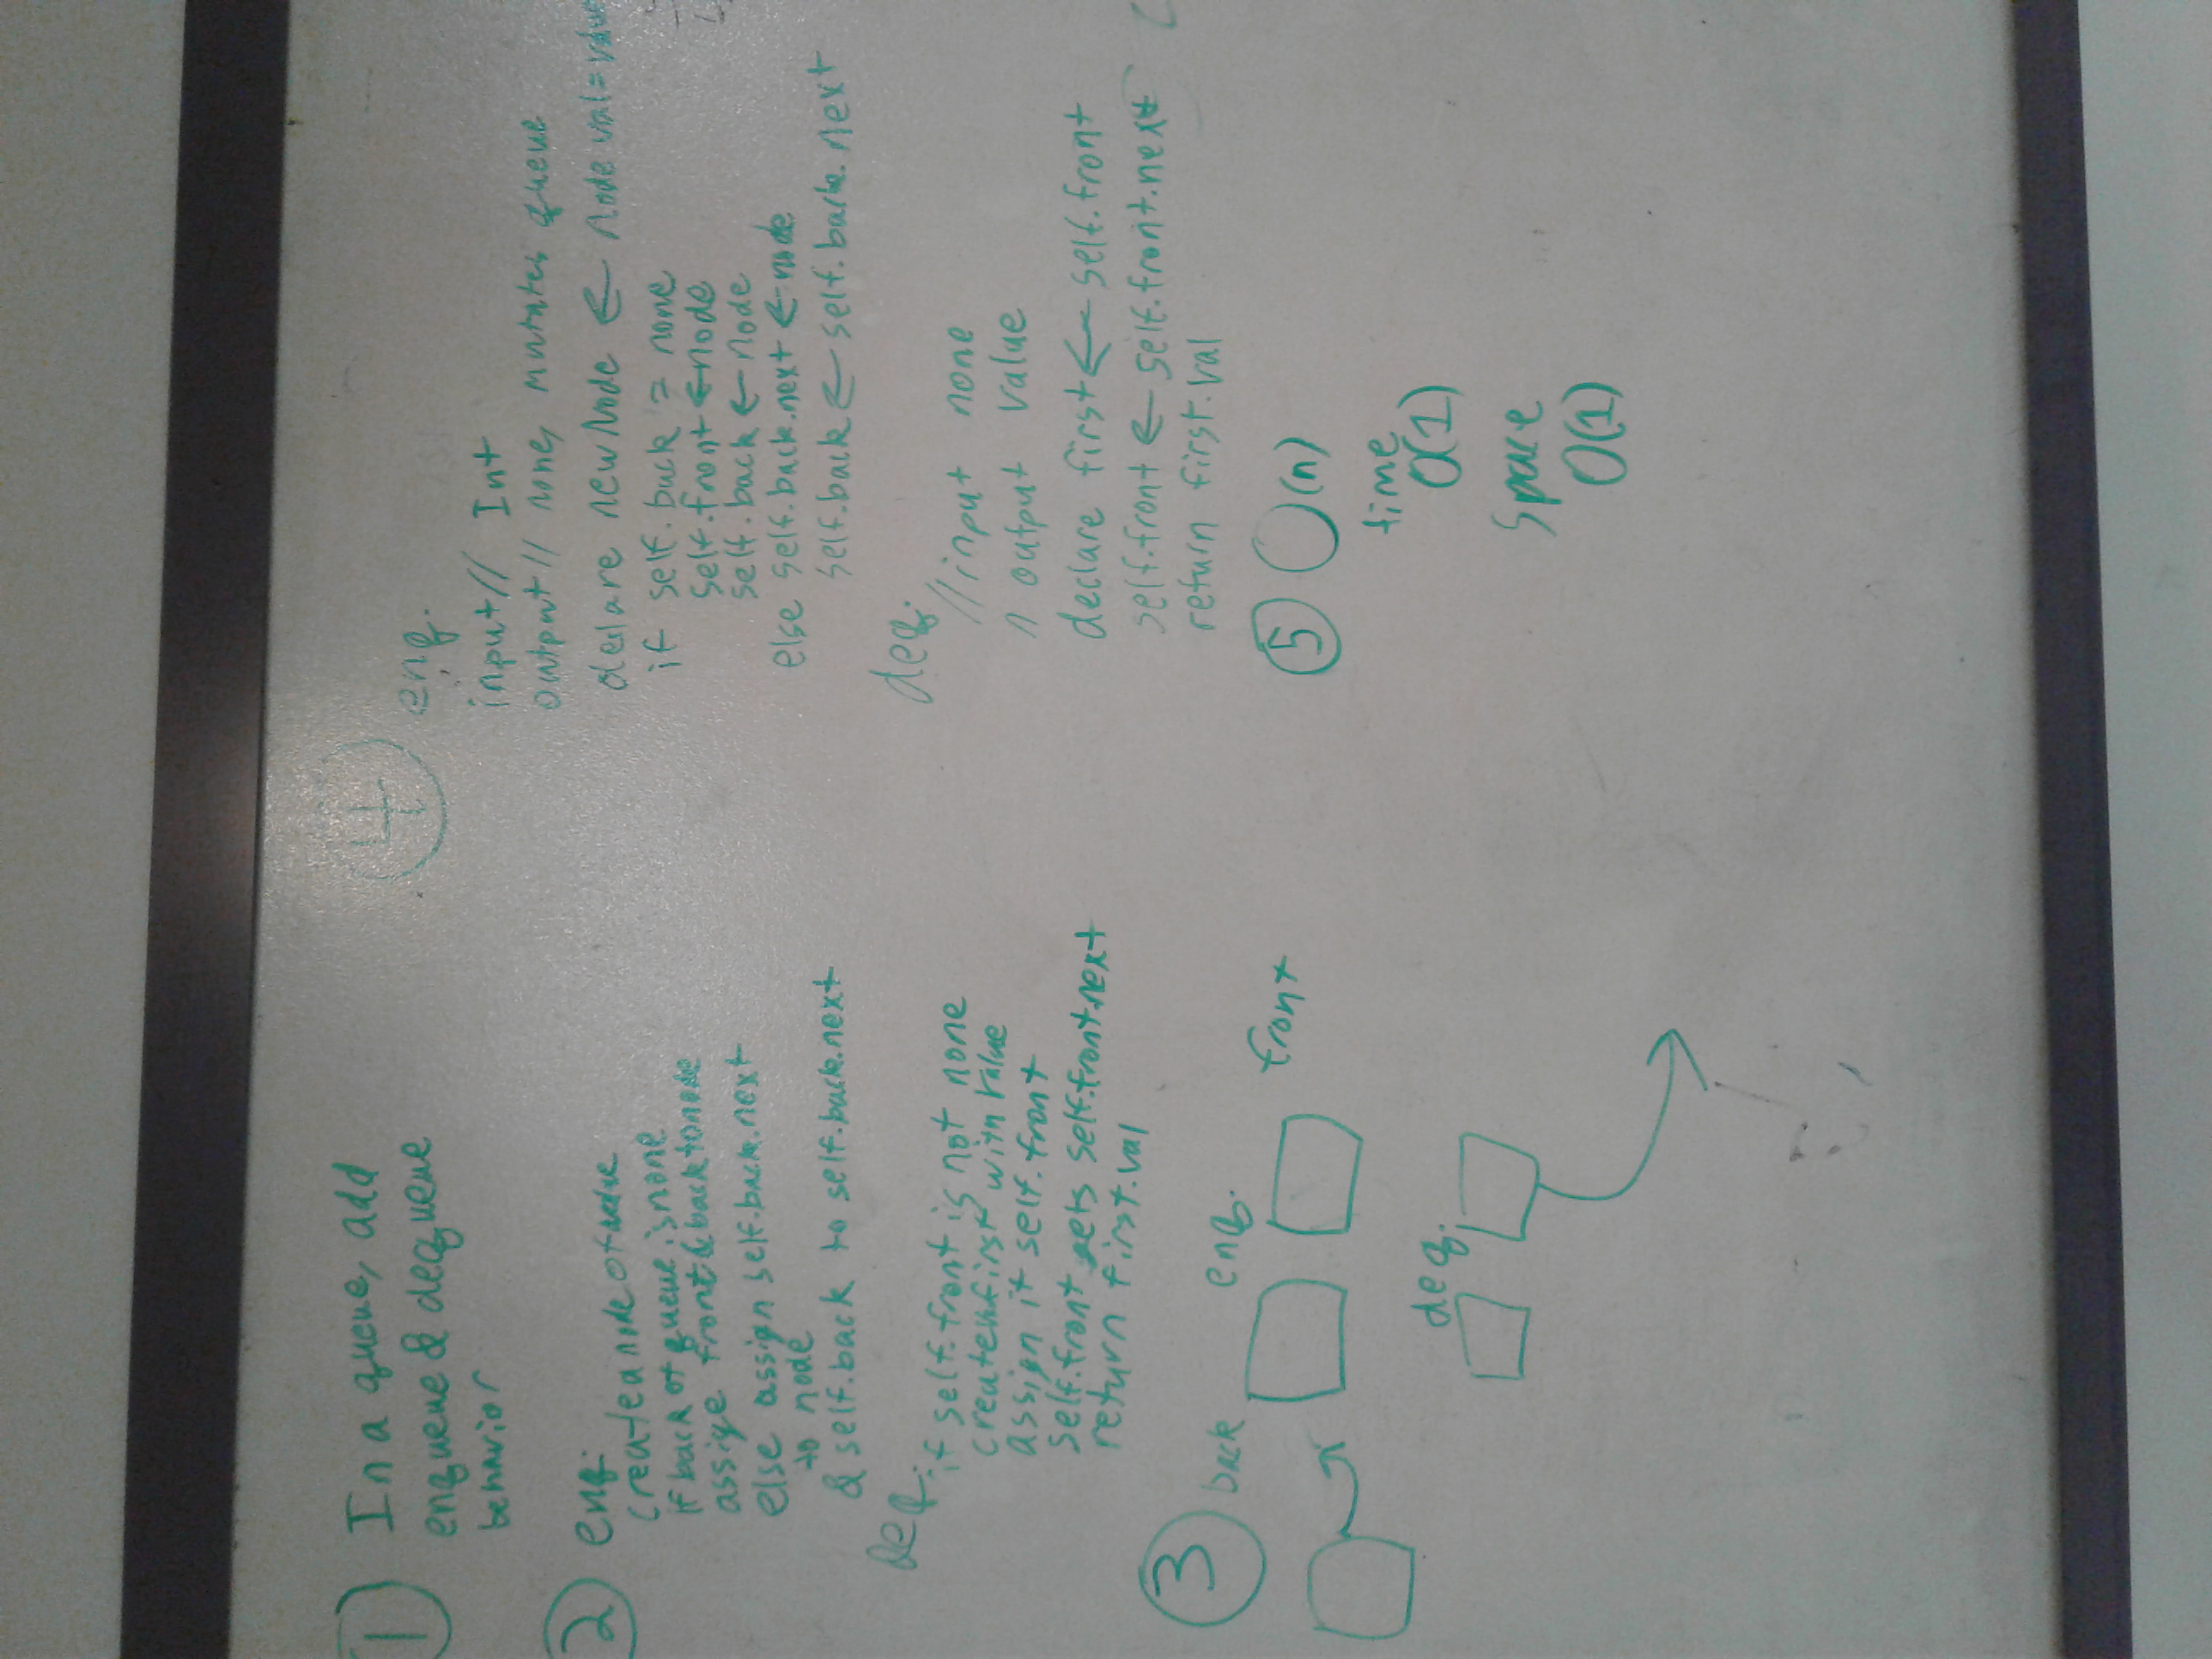 1
In a queue, add
enqueue & dequeue
behavior
2
enq.
create a node of value
if back of queue is none
assige front & back to node
else assign self.back.next
to node
& self.back to self.back.next
Deq.
if self.front is not none
create first with value
assign it self.front
self.front gets self.front.next
return first.val
3
back
enq.
front
deq.
4
enq.
input// Int
output// none, mutates queue
declare newNode ← Node val = value
if self.back = none
self.front ← node
self.back ← node
else self.back.next ← node
self.back ← self.back.next
deq.
//input none
output value
declare first ← self.front
self.front ← self.front.next
return first.val
5
O(n)
time
O(1)
Space
O(1)